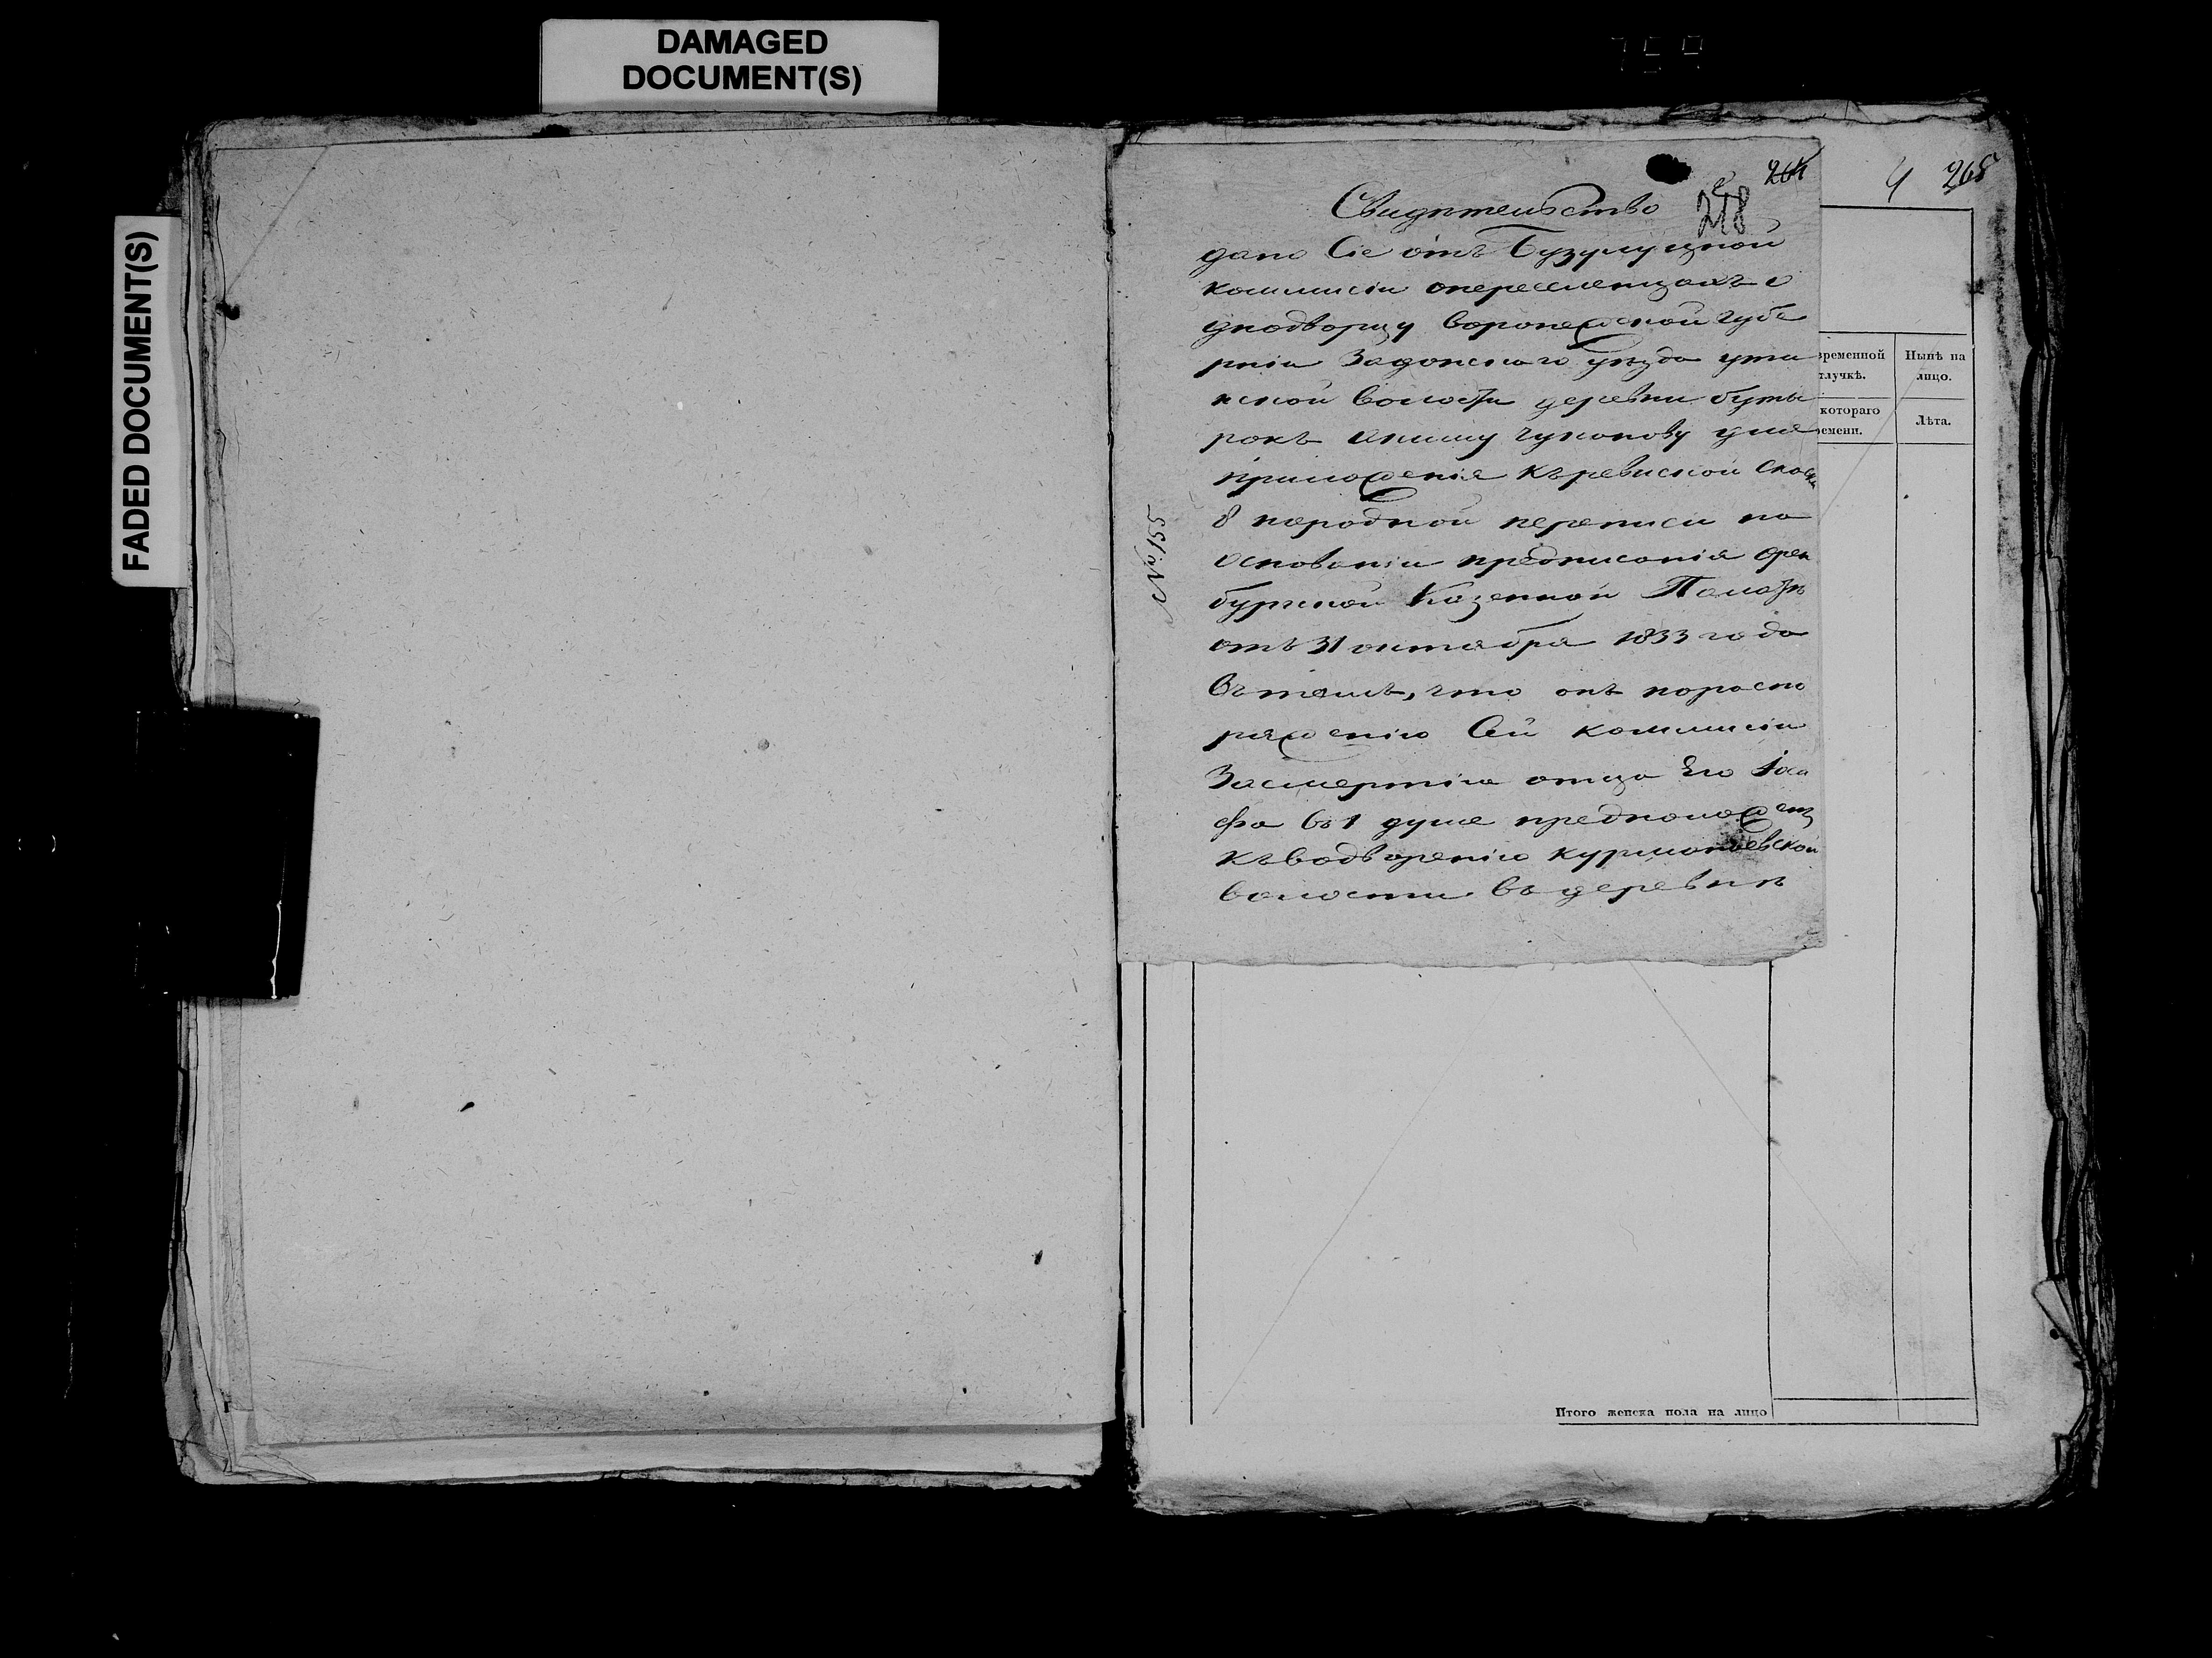 DAMAGED
DOCUMENT(S)
FADED DOCUMENT(S)
264
4 265
248
Свидѣтельство
дано Сіе отъ Бузулуцкой
коммисіи опереселенцахъ о
днодворцу воронежской губе
рніи Задонского уѣзда
нской волости деревни буты
рокъ Акиму чуканову для
приложенія къревиской Сказк
8 народной переписи на
основаніи предписанія Орен
бургской Казенной Палаты
отъ 31 октября 1833 года
Вътомъ, что онъ пораспо
ряженію Сей коммисіи
Засмертію отца Его Іоси
фа въ 1 душе предположенъ
къводворенію курманаевской
волости въ деревнѣ
№ 155
временной
тлучкѣ.
Нынѣ на
лицо.
котораго
емени.
Лѣта.
Итого женска пола на лицо